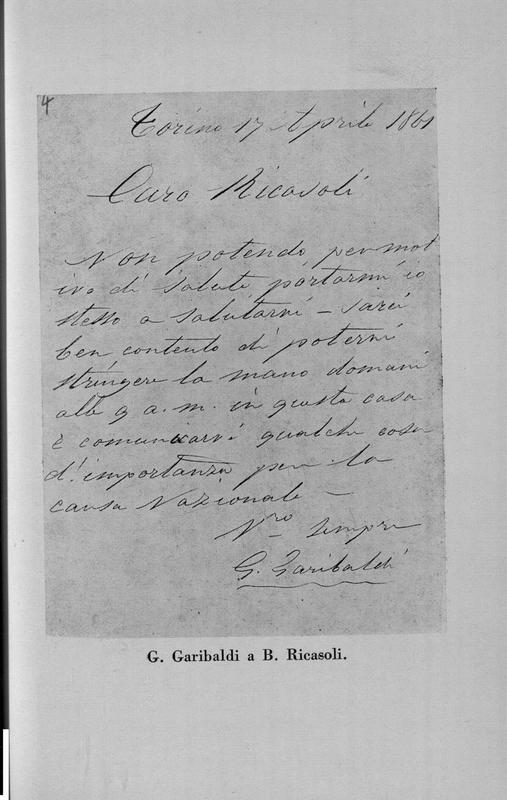 4
Torino 17 Aprile 1861
Caro Ricasoli
Non potendo per mot
ivo di salute portarmi io
stesso a salutarvi – sarei
ben contento di potervi
stringere la mano domani
alle 9 a.m. in questa casa
e comunicarvi qualche cosa
d'importanza per la
causa Nazionale –
Vro sempre
G. Garibaldi
G. Garibaldi a B. Ricasoli.